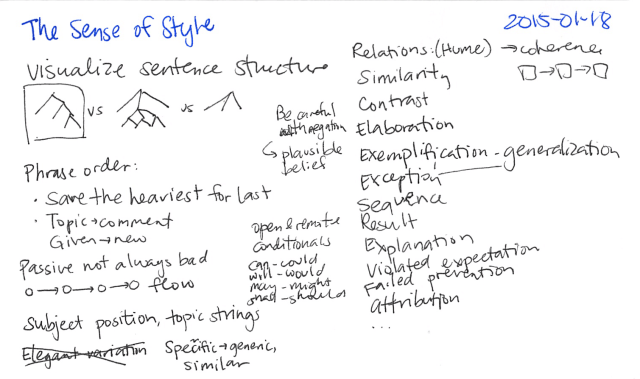 The Sense of Style
2015-01-18
Visualize sentence structure
vs
vs
Be careful
with negation
plausible
belief
Phrase order:
• Save the heaviest for last
• Topic→comment
Given→new
Passive not always bad
o→o→o→o flow
open & remote
conditionals
can-could
will-would
may-might
shall-should
Subject position, topic strings
Elegant variation
Specific→generic,
similar
Relations: (Hume) →coherence
Similarity
Contrast
Elaboration
Exemplification - generalization
Exception
Sequence
Result
Explanation
Violated expectation
Failed prevention
Attribution
...